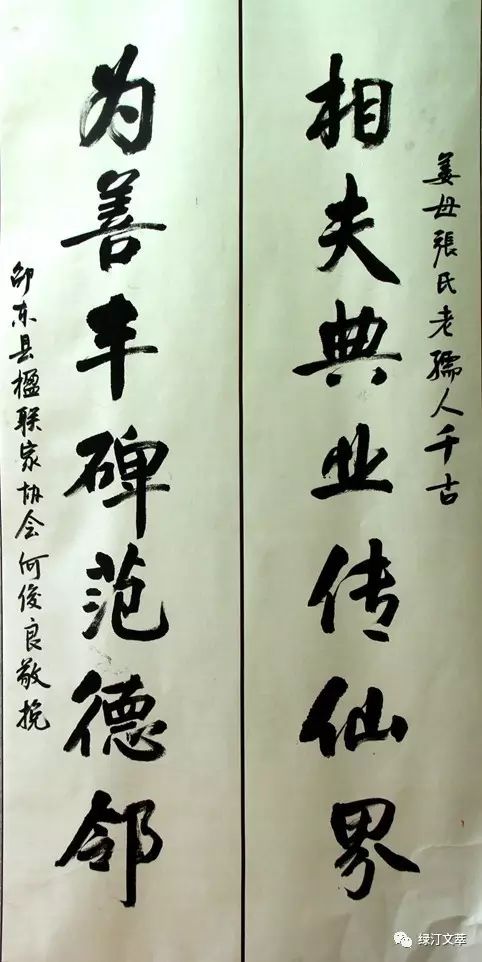 姜母張氏老孺人千古
相夫典业传仙界
为善丰碑范德邻
邵东县楹联家协会何俊良敬挽
绿汀文萃